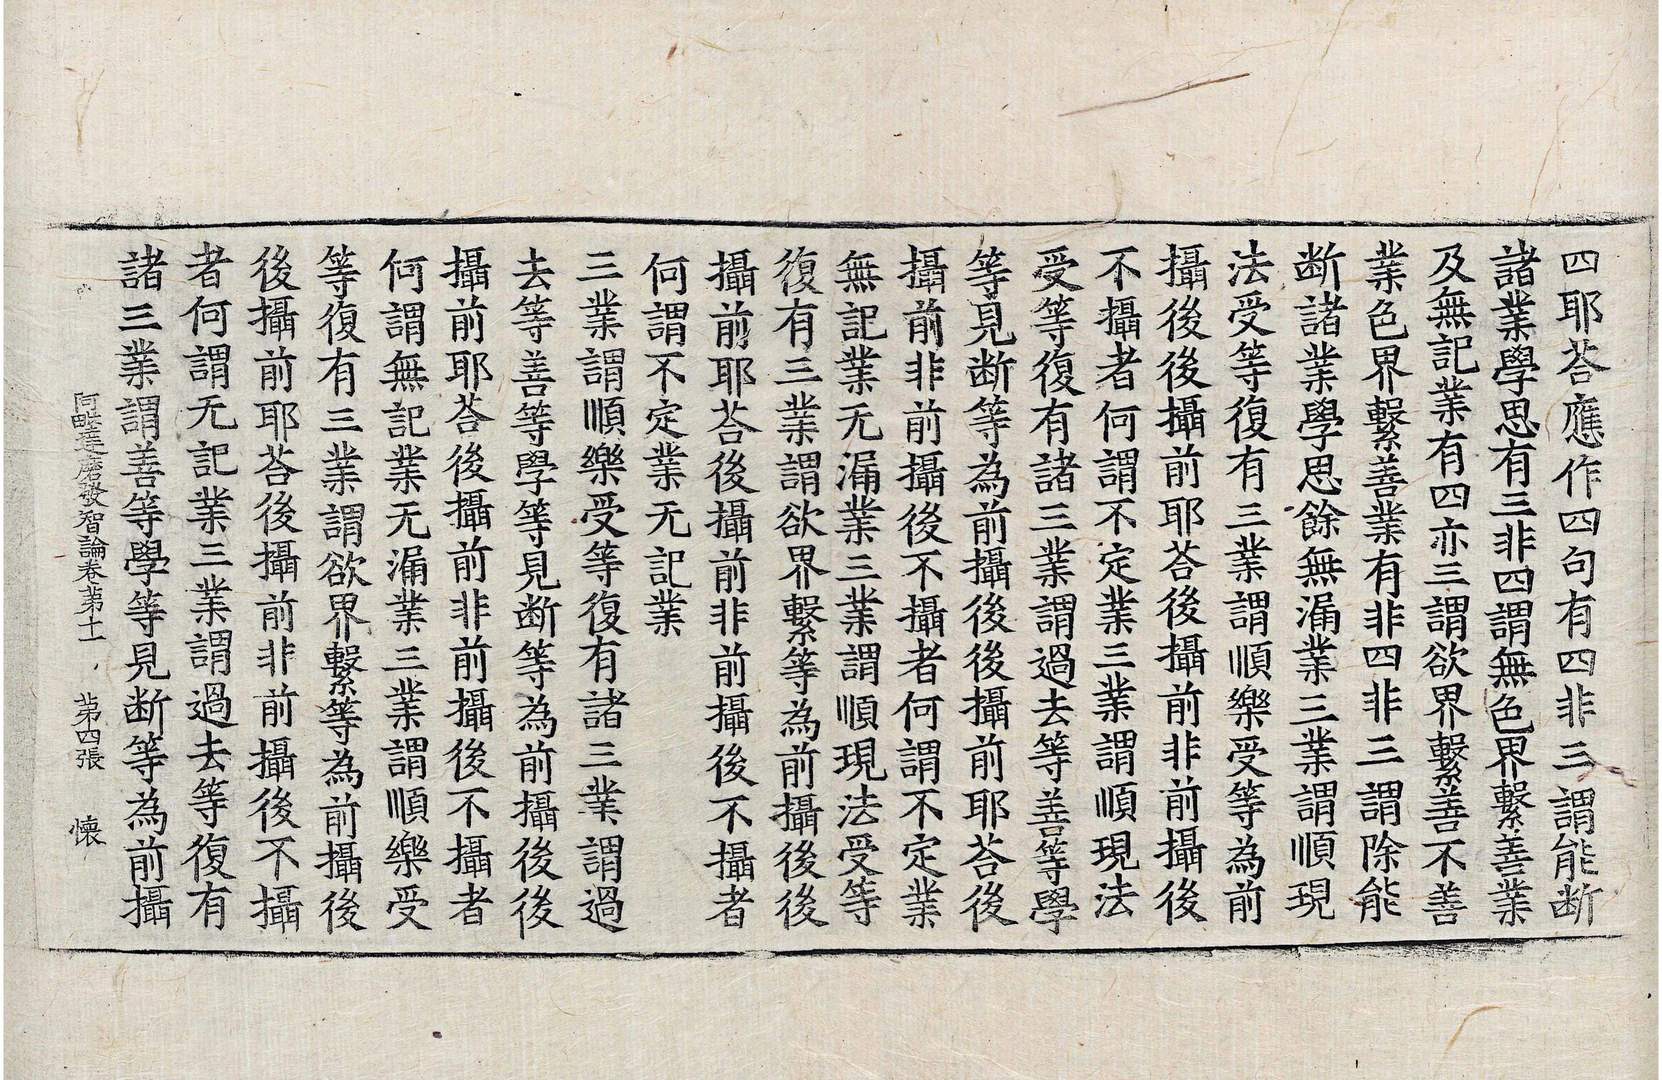 四耶荅應作四句有四非三謂能断
諸業學思有三非四謂無色界繫善業
及無記業有四亦三謂欲界繫善不善
業色界繫善業有非四非三謂除能
断諸業學思餘無漏業三業謂順現
法受等復有三業謂順樂受等為前
攝後後攝前耶荅後攝前非前攝後
不攝者何謂不定業三業謂順現法
受等復有諸三業謂過去等善等學
等見断等為前攝後後攝前耶荅後
攝前非前攝後不攝者何謂不定業
無記業无漏業三業謂順現法受等
復有三業謂欲界繫等為前攝後後
攝前耶荅後攝前非前攝後不攝者
何謂不定業无記業
三業謂順樂受等復有諸三業謂過
去等善等學等見断等為前攝後後
攝前耶荅後攝前非前攝後不攝者
何謂無記業无漏業三業謂順樂受
等復有三業謂欲界繫等為前攝後
後攝前耶荅後攝前非前攝後不攝
者何謂无記業三業謂過去等復有
諸三業謂善等學等見断等為前攝
阿毗達磨發智論卷苐十一 苐四張 懐